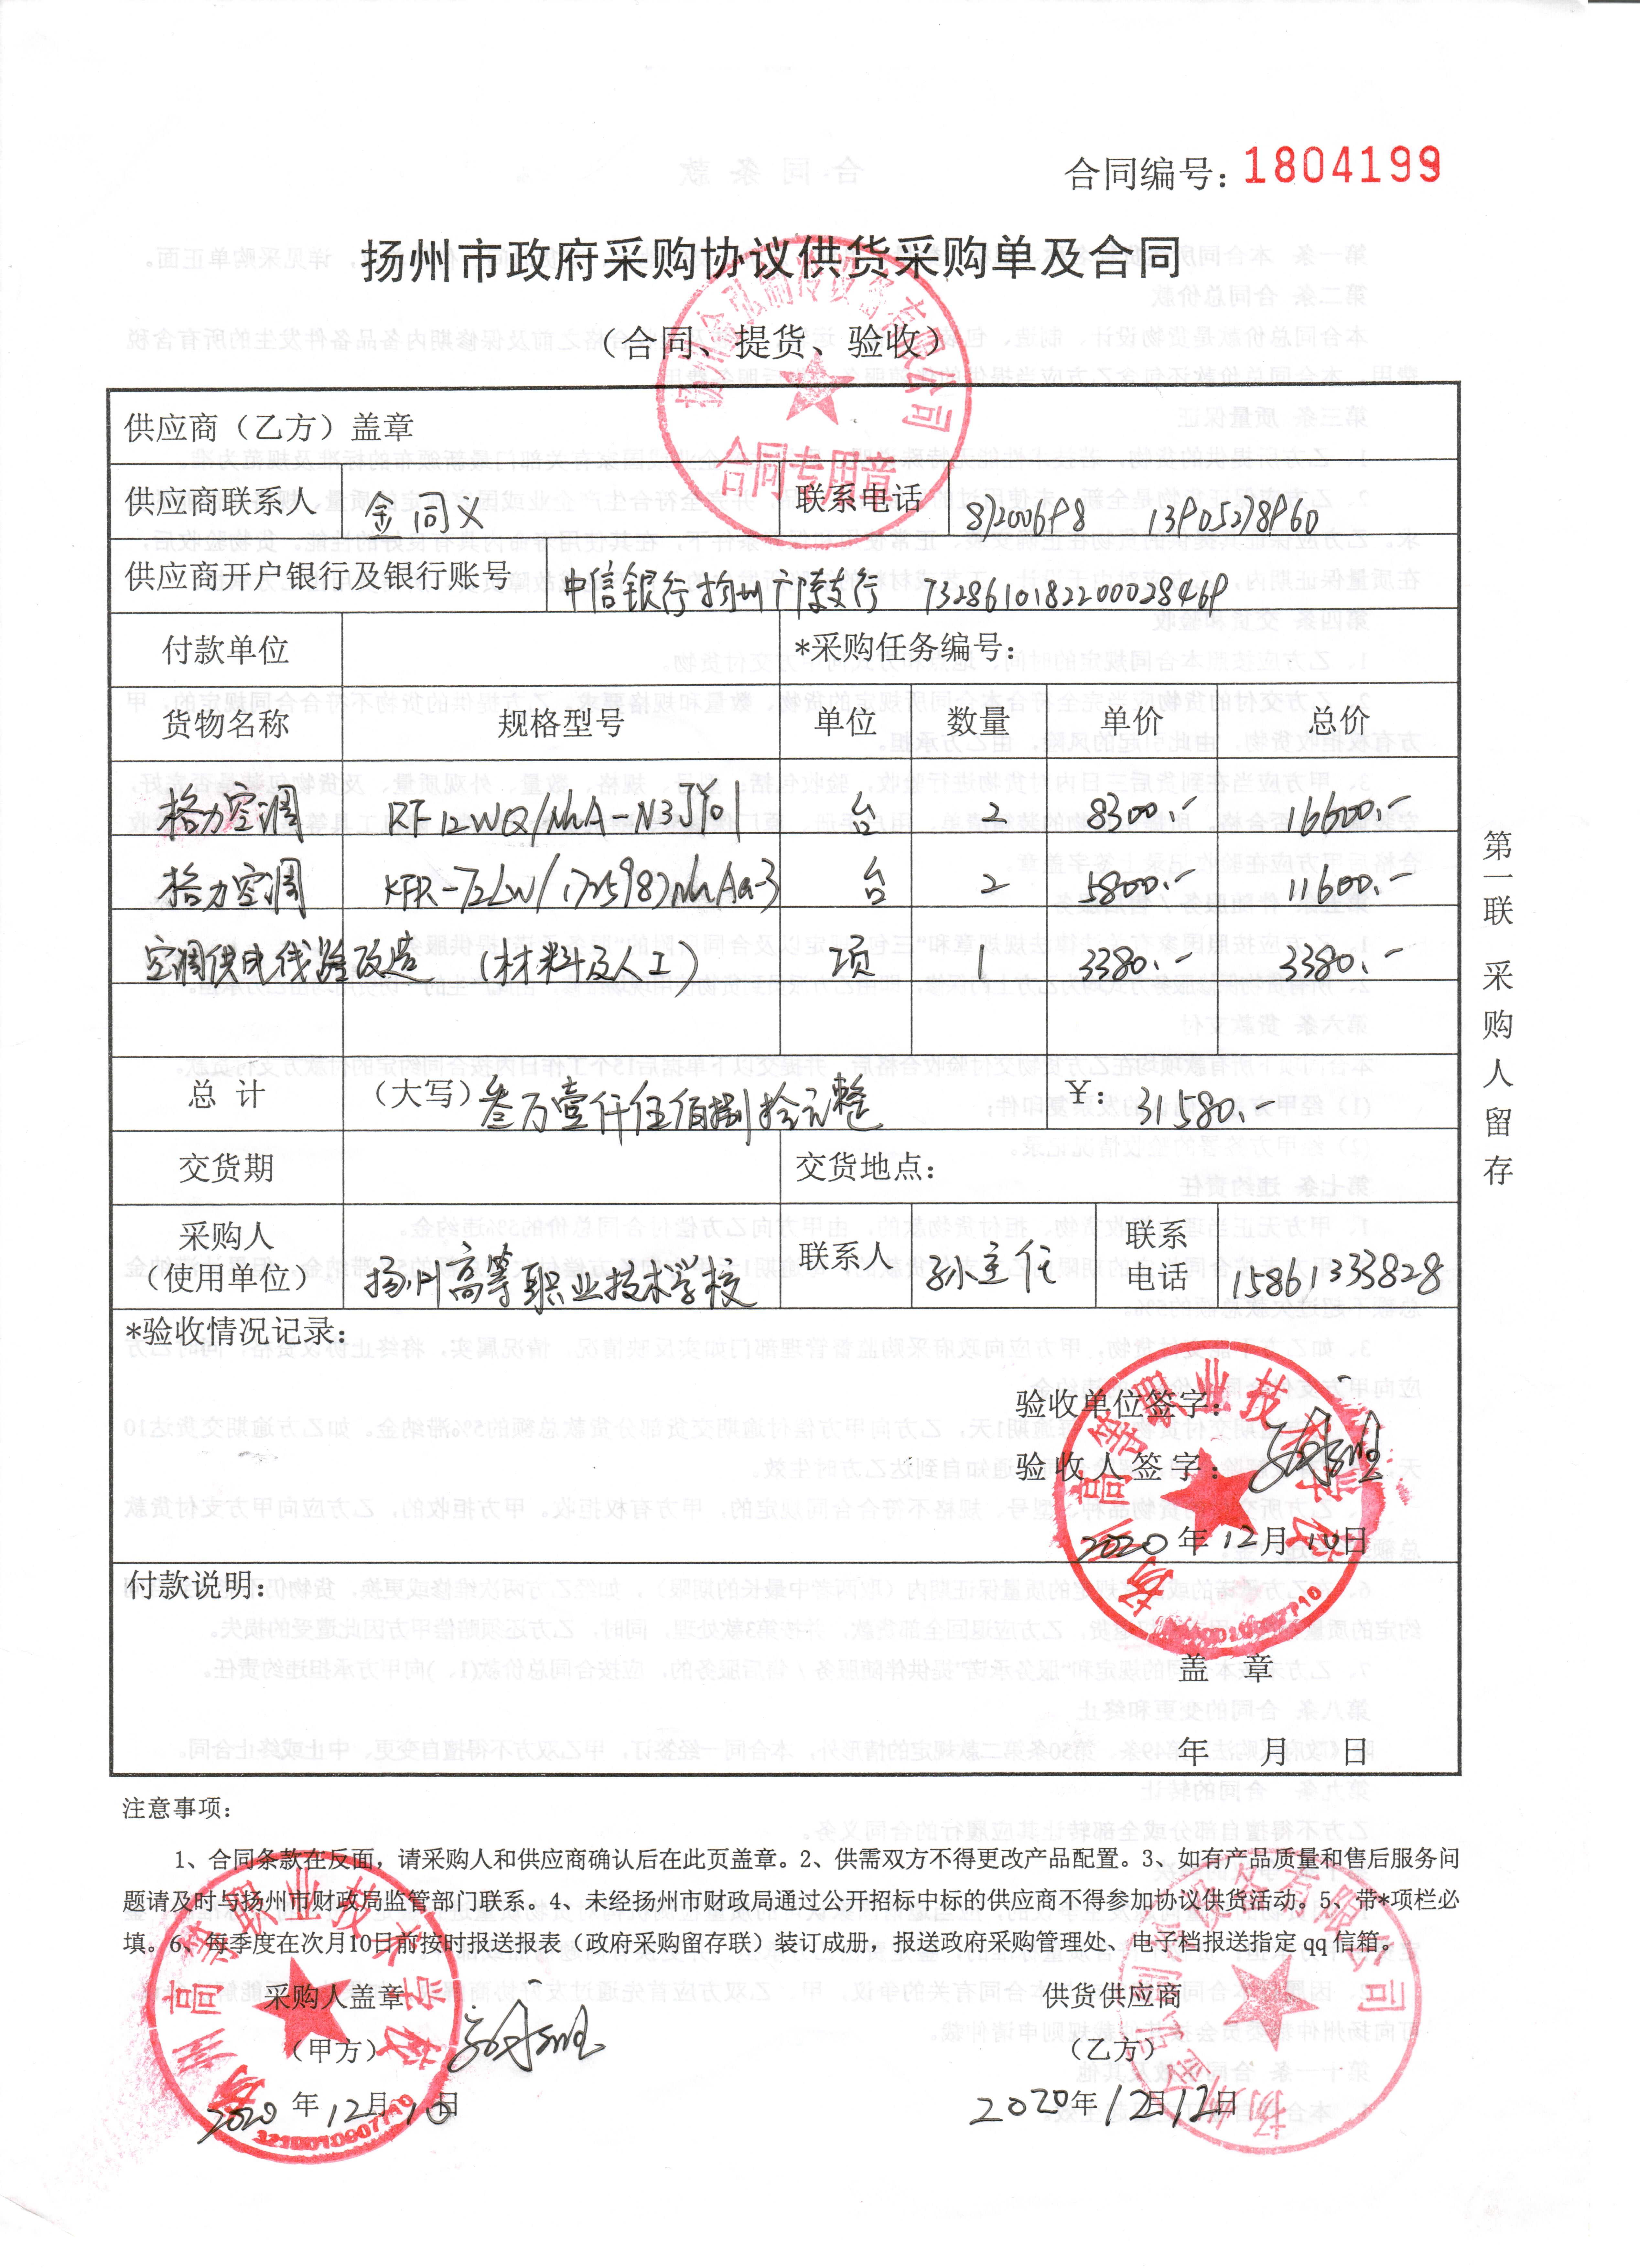 合同编号：1804199
扬州市政府采购协议供货采购单及合同
（合同、提货、验收）
扬州金泓制冷设备有限公司
合同专用章
供应商（乙方）盖章
供应商联系人 金同义 联系电话 87200698 13905278960
供应商开户银行及银行账号 中信银行扬州广陵支行 7328610182200028469
付款单位 *采购任务编号：
货物名称 规格型号 单位 数量 单价 总价
格力空调 RF12WQ/NhA-N3JY01 台 2 8300.- 16600.-
格力空调 KFR-72LW/(72598)NhAa-3 台 2 5800.- 11600.-
空调供电线路改造 (材料及人工) 项 1 3380.- 3380.-
总 计 （大写）叁万壹仟伍佰捌拾元整 ¥：31580.-
交货期 交货地点：
采购人（使用单位） 扬州高等职业技术学校 联系人 孙主任 联系电话 15861333828
*验收情况记录：
验收单位签字：
验收人签字：
2020年12月10日
付款说明：
盖 章
年 月 日
第一联 采购人留存
注意事项：
1、合同条款在反面，请采购人和供应商确认后在此页盖章。2、供需双方不得更改产品配置。3、如有产品质量和售后服务问
题请及时与扬州市财政局监管部门联系。4、未经扬州市财政局通过公开招标中标的供应商不得参加协议供货活动。5、带*项栏必
填。6、每季度在次月10日前按时报送报表（政府采购留存联）装订成册，报送政府采购管理处、电子档报送指定 qq 信箱。
采购人盖章 供货供应商
（甲方） （乙方）
2020年12月10日 2020年12月12日
扬州高等职业技术学校
3210010907710
扬州金泓制冷设备有限公司